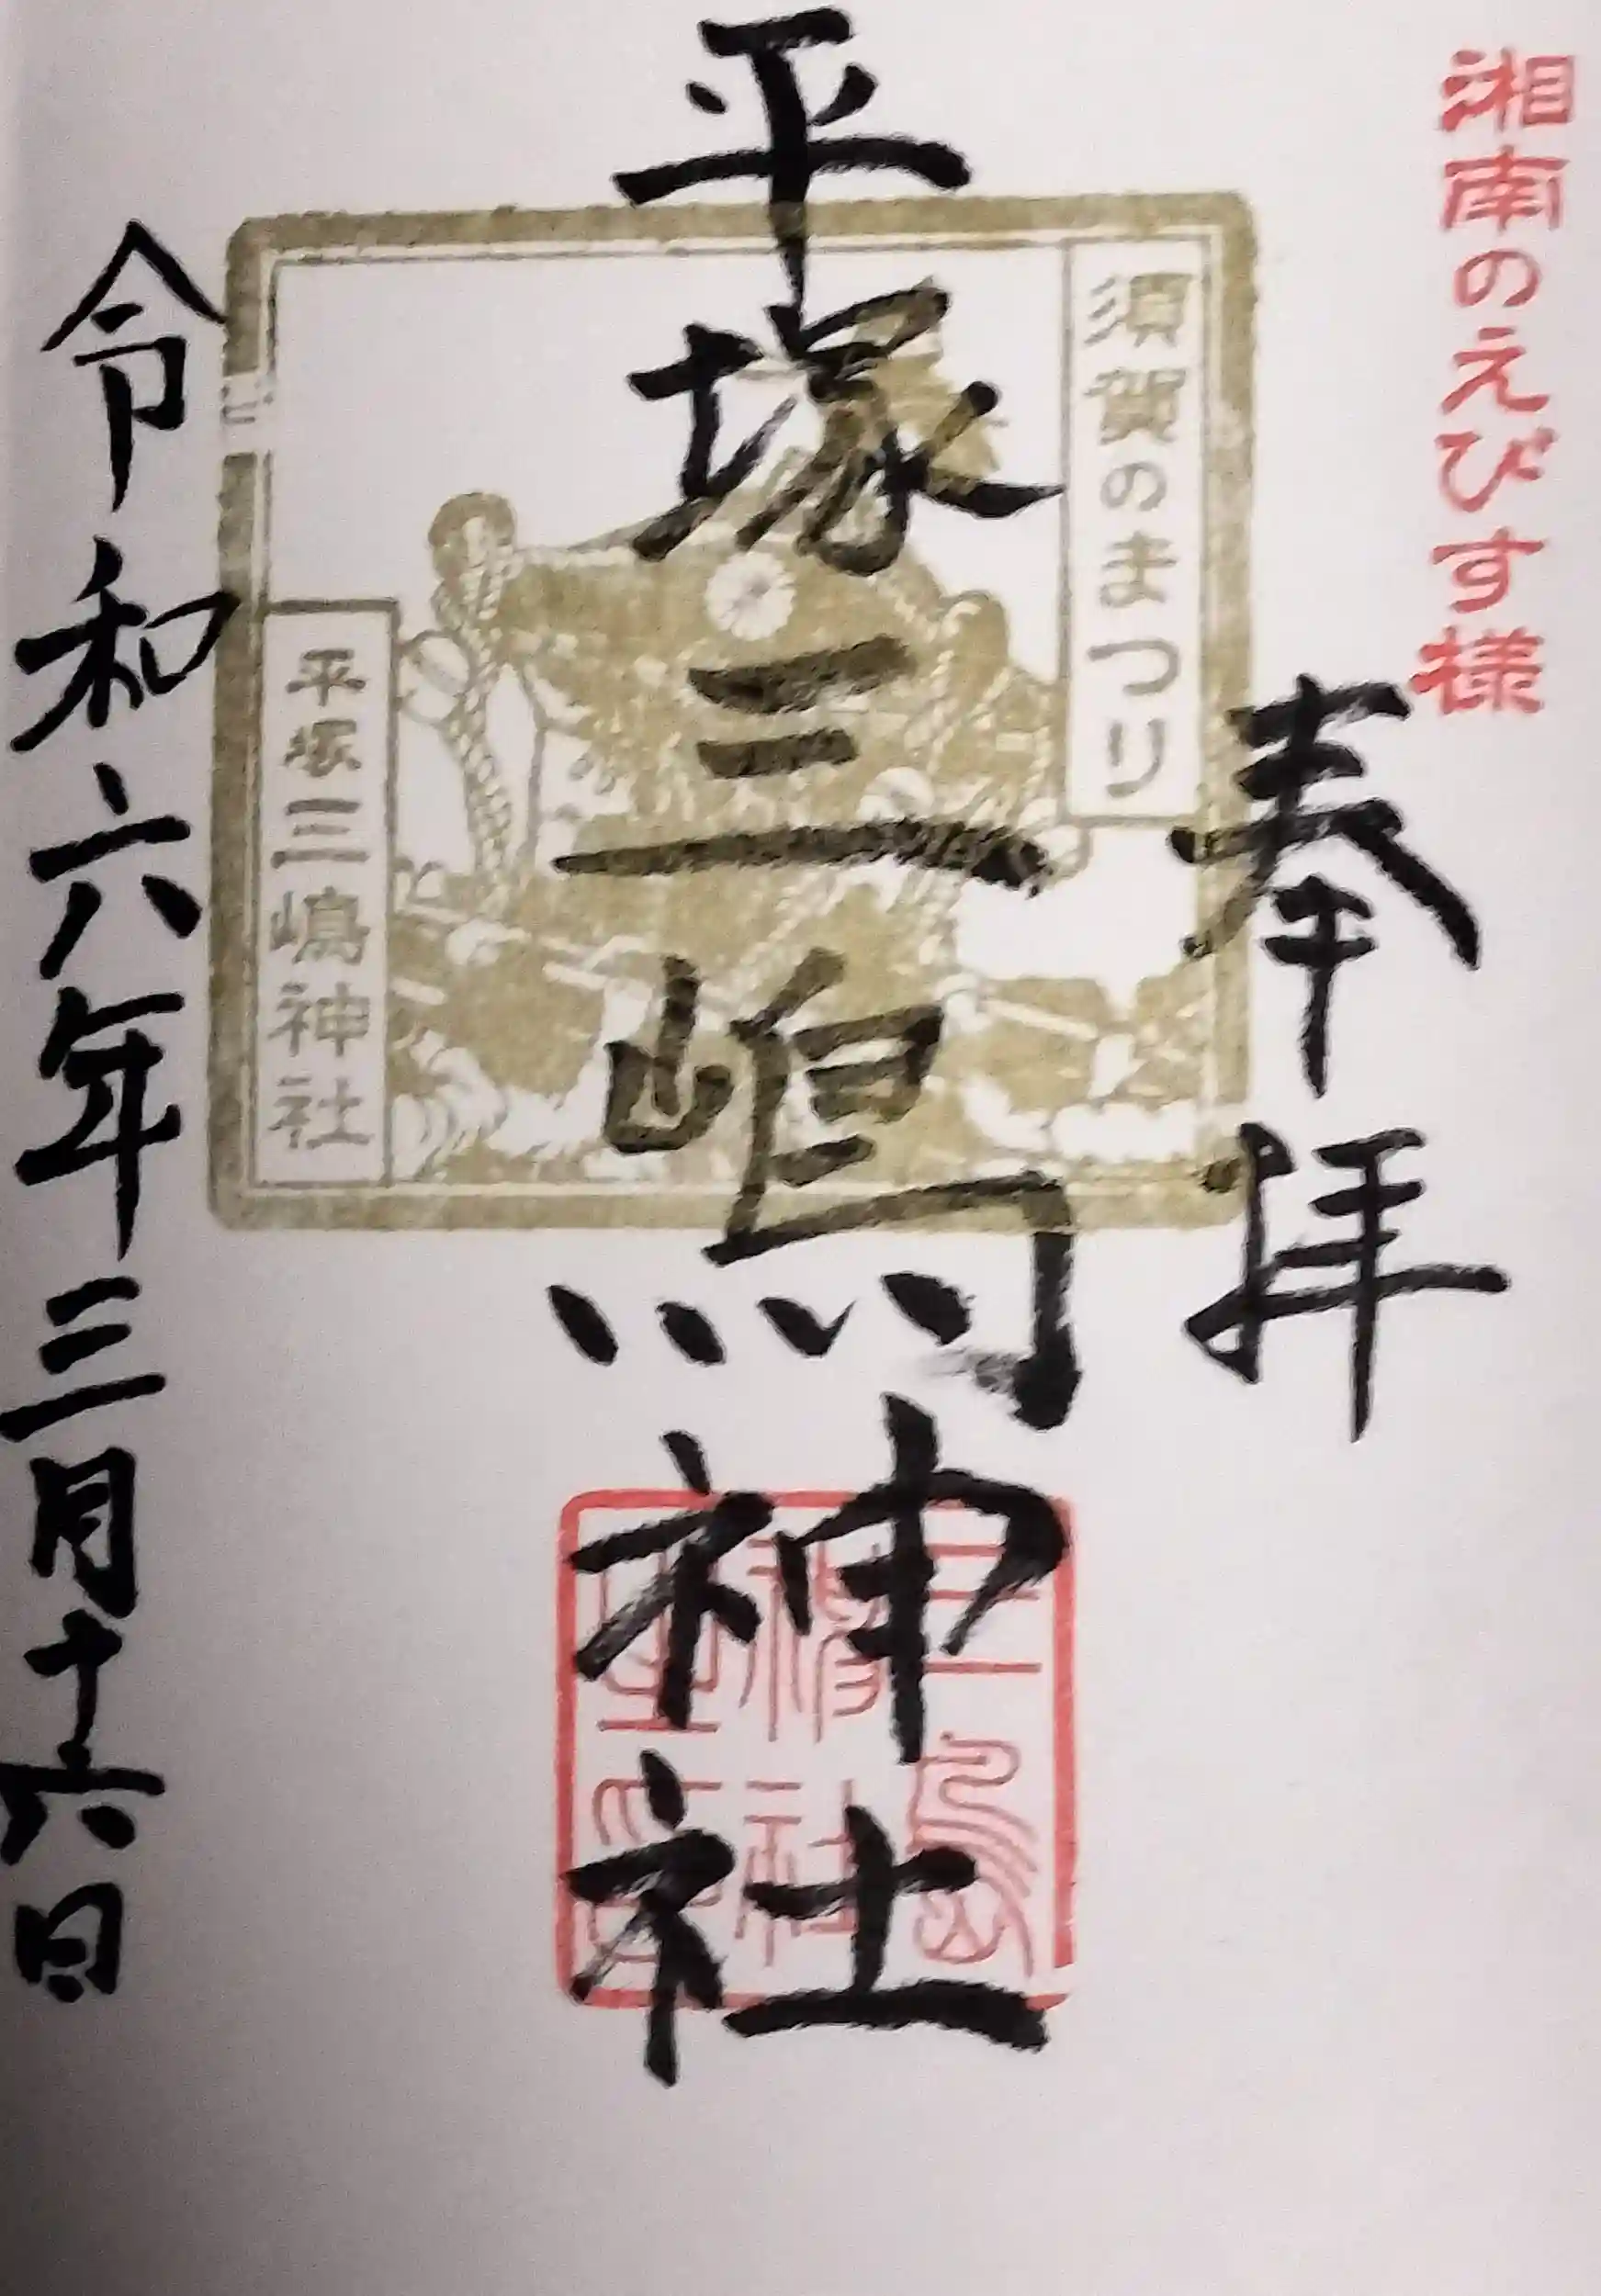 湘南のえびす様
奉拝
須賀のまつり
平塚三嶋神社
平塚三嶋神社
令和六年三月十六日